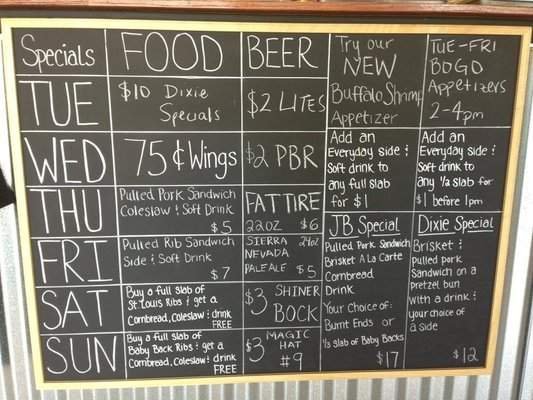 Specials
FOOD
BEER
TUE
$10 Dixie
Specials
$2 LITES
WED
75¢ Wings
$2 PBR
THU
Pulled Pork Sandwich
Coleslaw & Soft Drink
$5
FAT TIRE
22oz $6
FRI
Pulled Rib Sandwich
Side & Soft Drink
$7
SIERRA 24oz
NEVADA
PALE ALE $5
SAT
Buy a full slab of
St. Louis Ribs & get a
Cornbread, Coleslaw & drink
FREE
$3 SHINER
BOCK
SUN
Buy a full slab of
Baby Back Ribs & get a
Cornbread, Coleslaw & drink
FREE
$3 MAGIC
HAT
#9
Try our
NEW
Buffalo Shrimp
Appetizer
Add an
Everyday side &
Soft drink to
any full slab
for $1
JB Special
Pulled Pork Sandwich
Brisket A La Carte
Cornbread
Drink
Your Choice of:
Burnt Ends or
1/3 slab of Baby Backs
$17
TUE-FRI
BOGO
Appetizers
2-4pm
Add an
Everyday side &
Soft drink to
any 1/2 slab for
$1 before 1pm
Dixie Special
Brisket &
Pulled pork
Sandwich on a
pretzel bun
with a drink &
your choice of
a side
$12